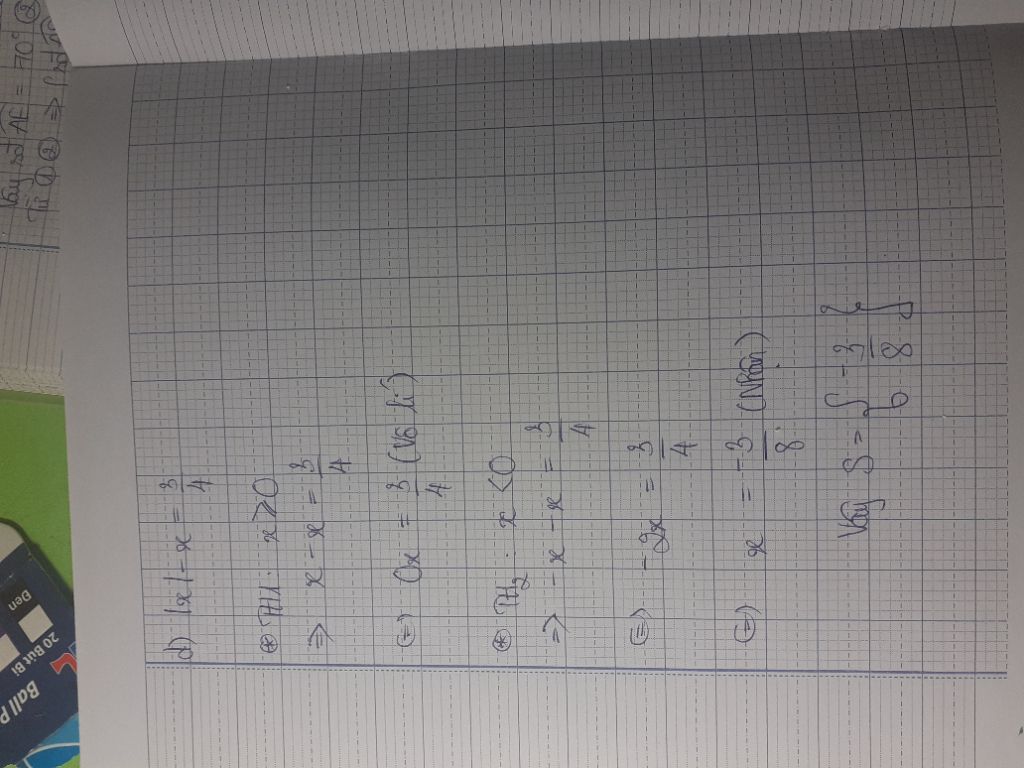 d) |x| - x = 3/4
⊛ TH1: x ≥ 0
=> x - x = 3/4
(=) 0x = 3/4 (Vô lí)
⊛ TH2: x < 0
=> -x - x = 3/4
(=) -2x = 3/4
(=) x = -3/8 (Nhận)
Vậy S = { -3/8 }
Vậy sđ AE = 70° ③
Từ ① ② =>
Ball P
20 Bút Bi
Đen